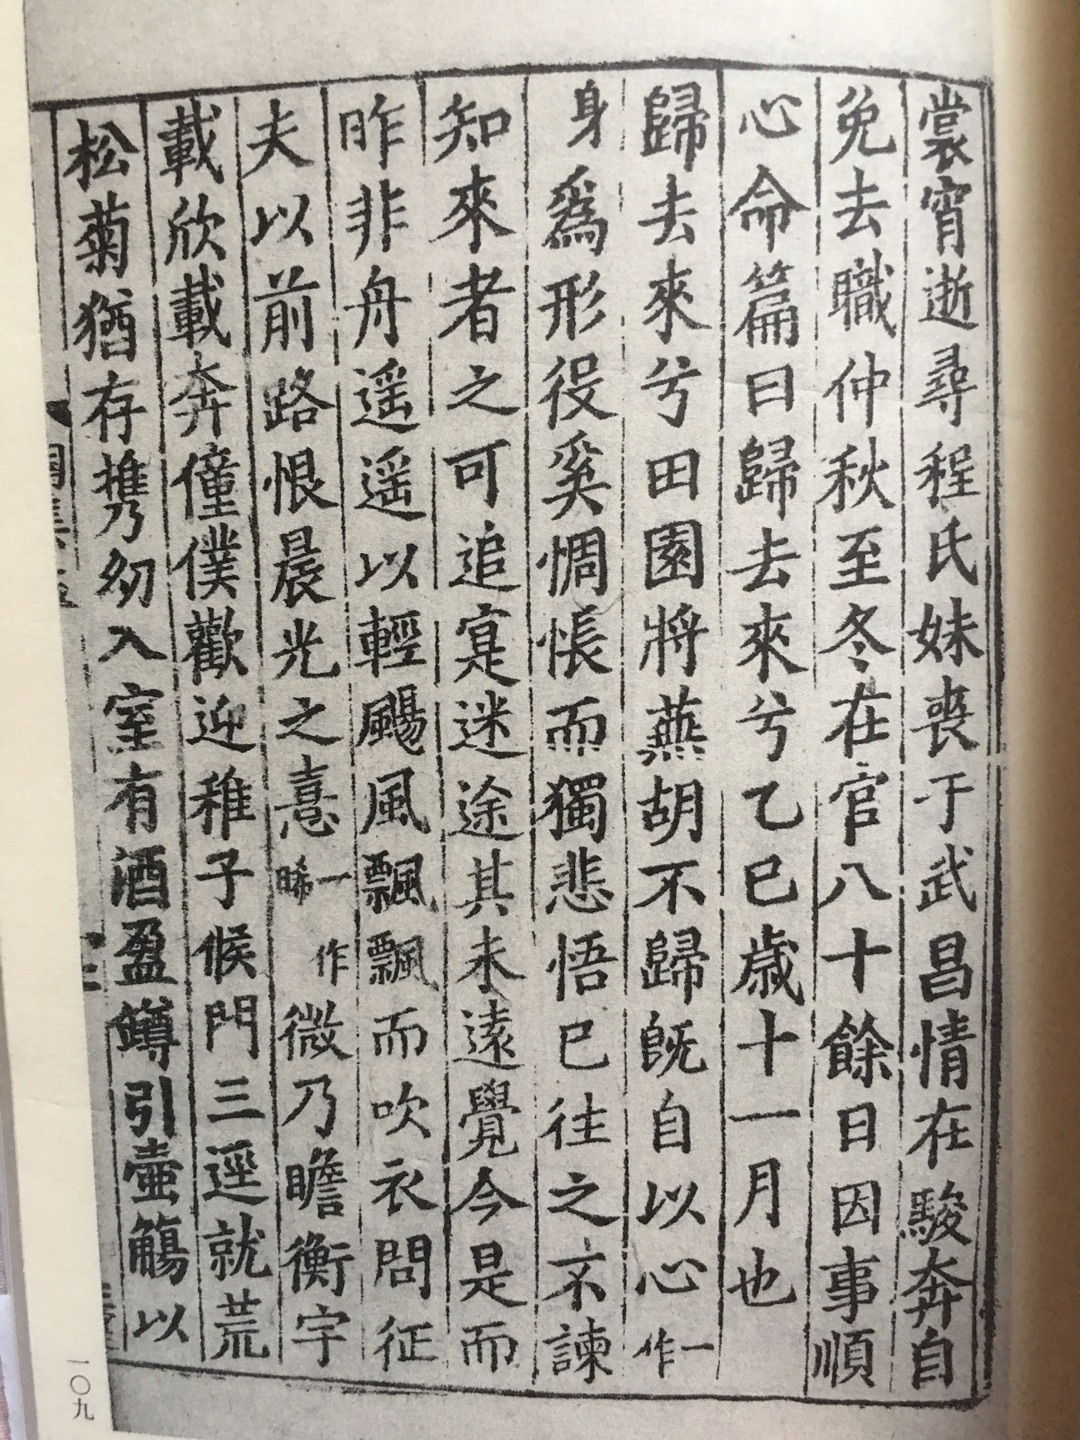 裳宵逝尋程氏妹喪于武昌情在駿奔自
免去職仲秋至冬在官八十餘日因事順
心命篇曰歸去來兮乙巳歳十一月也
歸去來兮田園將蕪胡不歸旣自以心一作
身爲形役奚惆悵而獨悲悟已往之不諫
知來者之可追寔迷途其未遠覺今是而
昨非舟遥遥以輕颺風飄飄而吹衣問征
夫以前路恨晨光之憙一作晞微乃瞻衡宇
載欣載奔僮僕歡迎稚子候門三逕就荒
松菊猶存携㓜入室有酒盈罇引壷觴以
一〇九